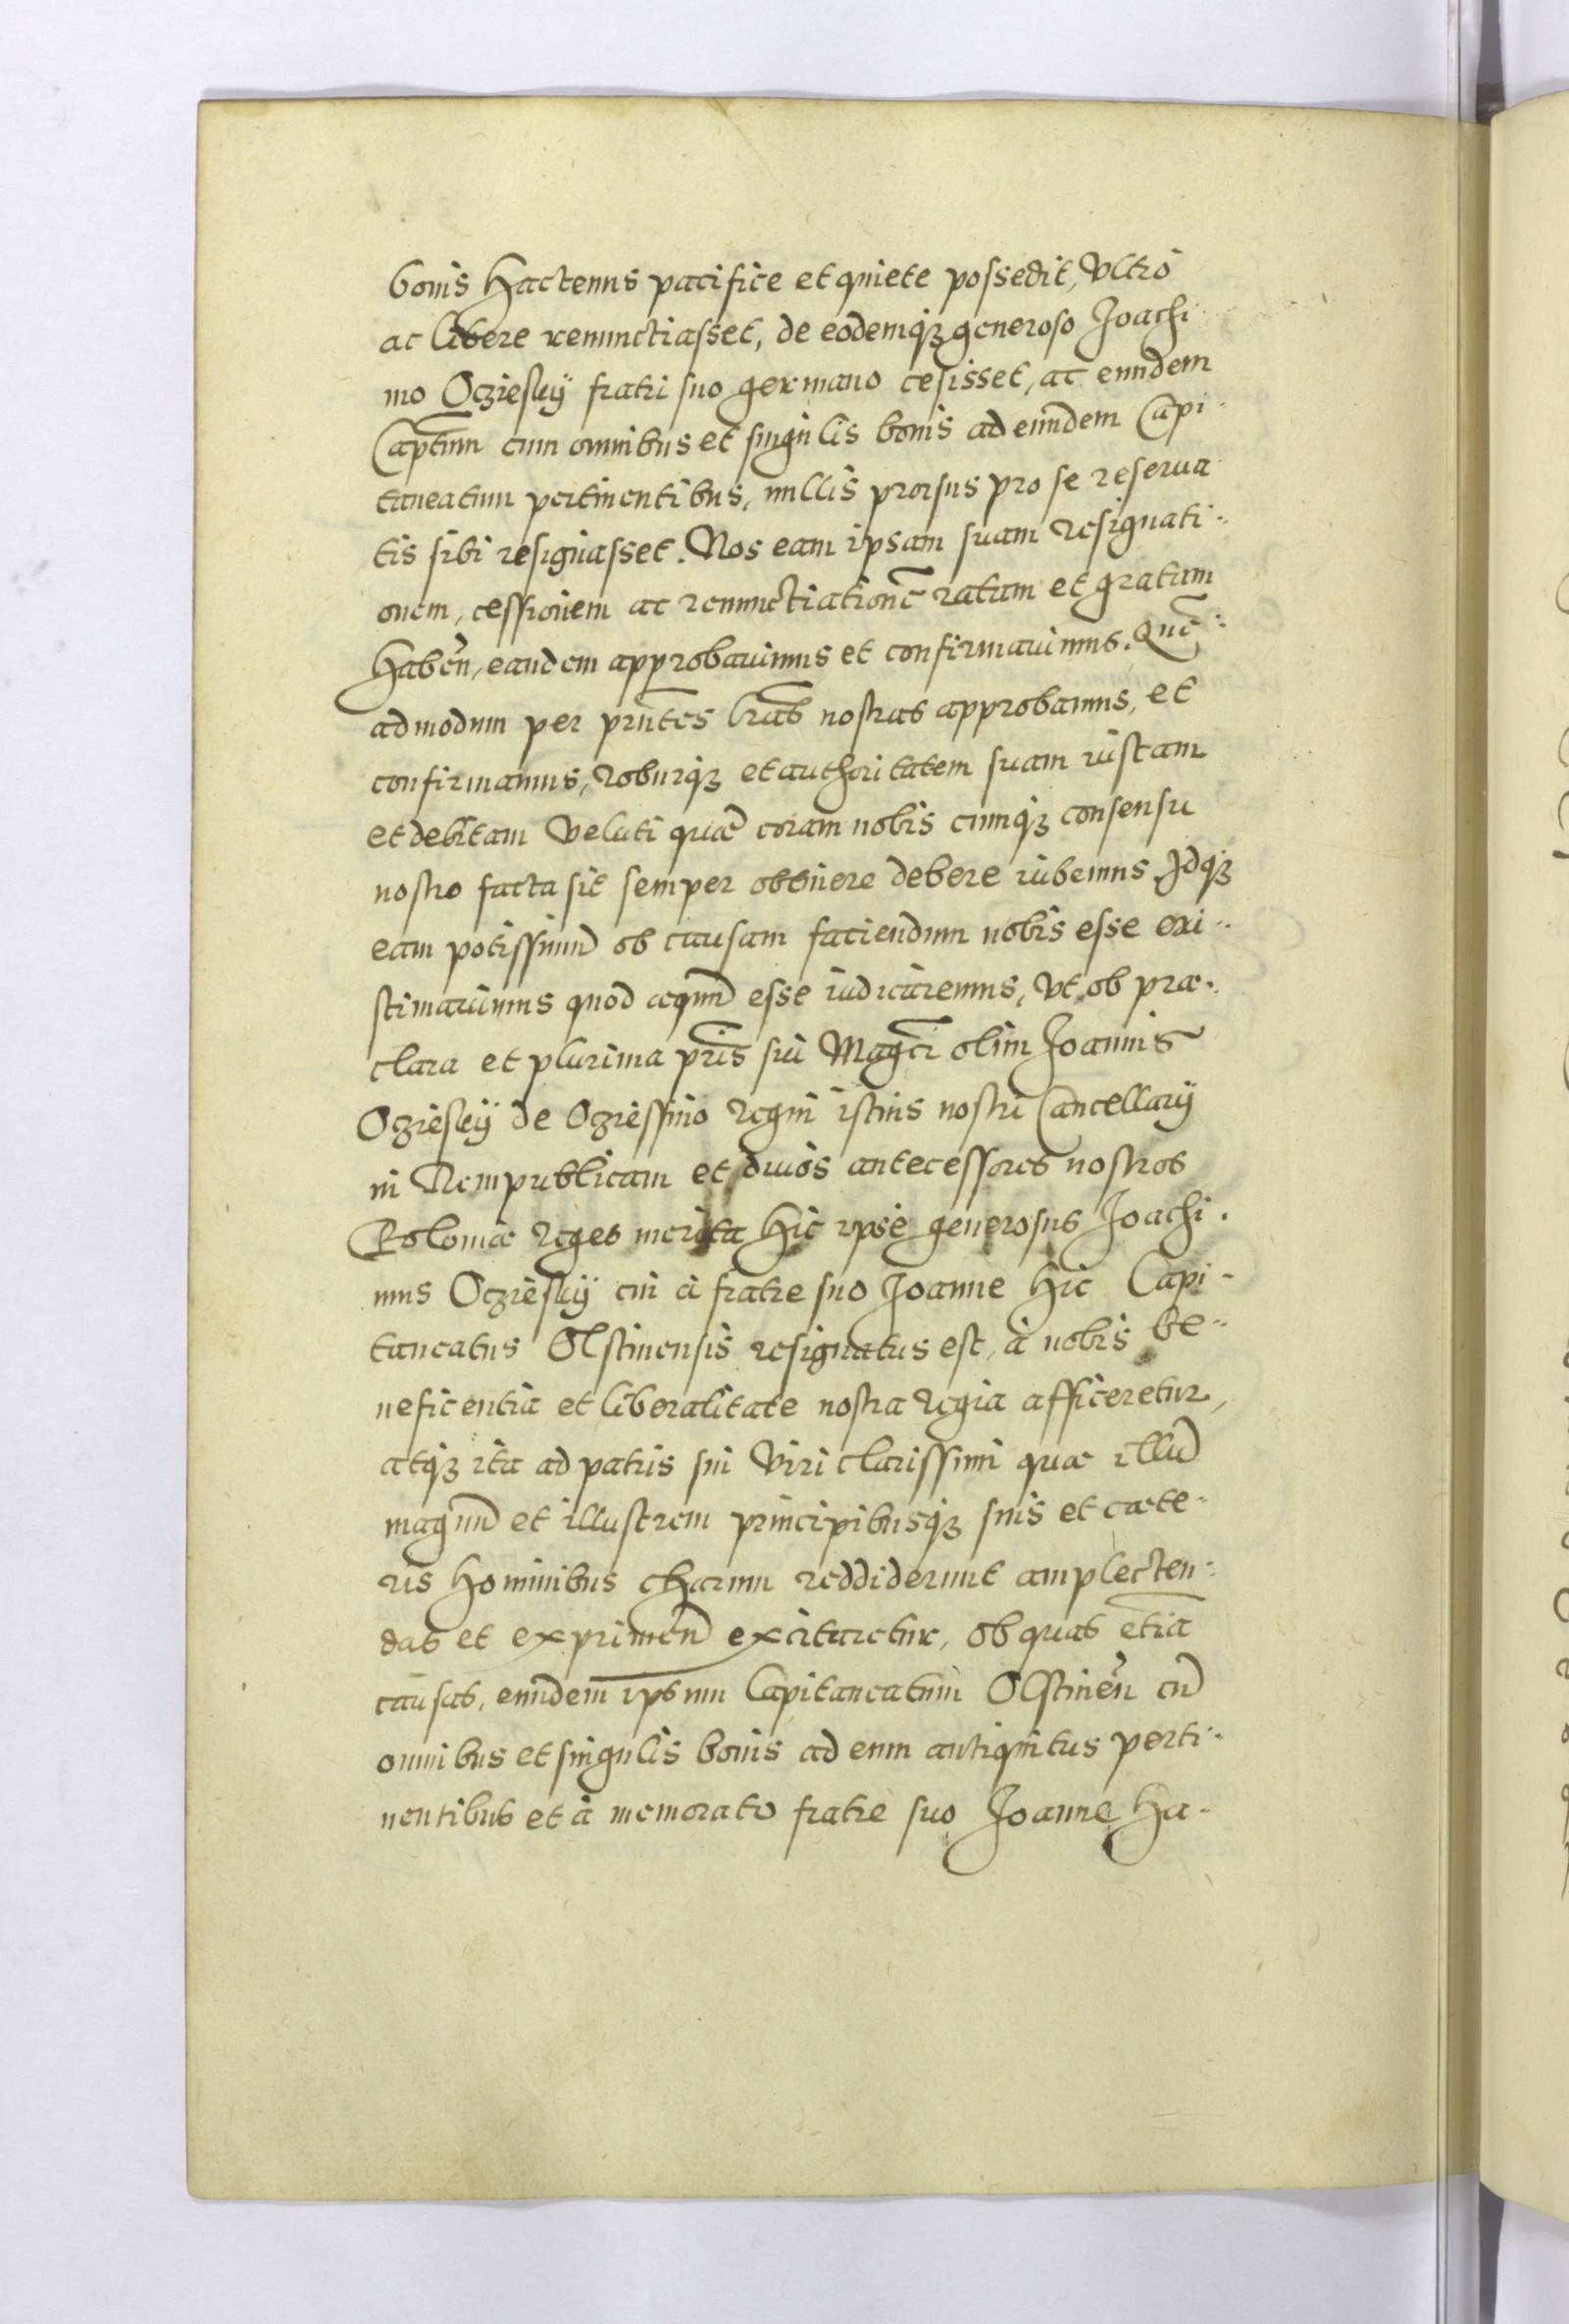 bonis hactenus pacifice et quiete possedit, vltró
ac libere renunctiasset, de eodemqꝫ generoso Joachi
mo Oczieskÿ fratri suo germano cesisset, ac eundem
Captum cum omnibus et singulis bonis ad eundem Capi-
taneatum pertinentibus, nullis prorsus pro se reserua
tis sibi resignasset. Nos eam ipsam suam resignati-
onem, cessionem ac renunctiationē ratam et gratam
habeñ, eandem approbauimus et confirmauimus. Quē-
admodum per pr̄ntes l̄ras nostras approbamus, et
confirmamus, roburqꝫ et authoritatem suam iustam
et debitam veluti quæ coram nobis cumqꝫ consensu
nostro facta sit semper obtinere debere iubemus. Idqꝫ
eam potissimū ob causam faciendum nobis esse exi-
stimauimus quod æquū esse iudicaremus, vt ob præ-
clara et plurima pr̄is sui Magci olim Joannis
Oczieskÿ de Ocziessino regni istius nostri Cancellarij
in Rempublicam et diuos antecessores nostros
Poloniæ reges merita hic ipse generosus Joachi-
mus Oczieskÿ cui á fratre suo Joanne hic Capi-
taneatus Olstinensis resignatus est, á nobis be-
neficentia et liberalitate nostra regia afficeretur,
atqꝫ ita ad patris sui viri clarissimi quæ illū
magnū et illustrem principibusqꝫ suis et cæte-
ris hominibus charum reddiderunt amplecten-
das et exprimen̄ excitaretur, ob quas etiā
causas, eundem ipsum Capitaneatum Olstineñ cū
omnibus et singulis bonis ad eum antiquitus perti-
nentibus et á memorato fratre suo Joanne ha-